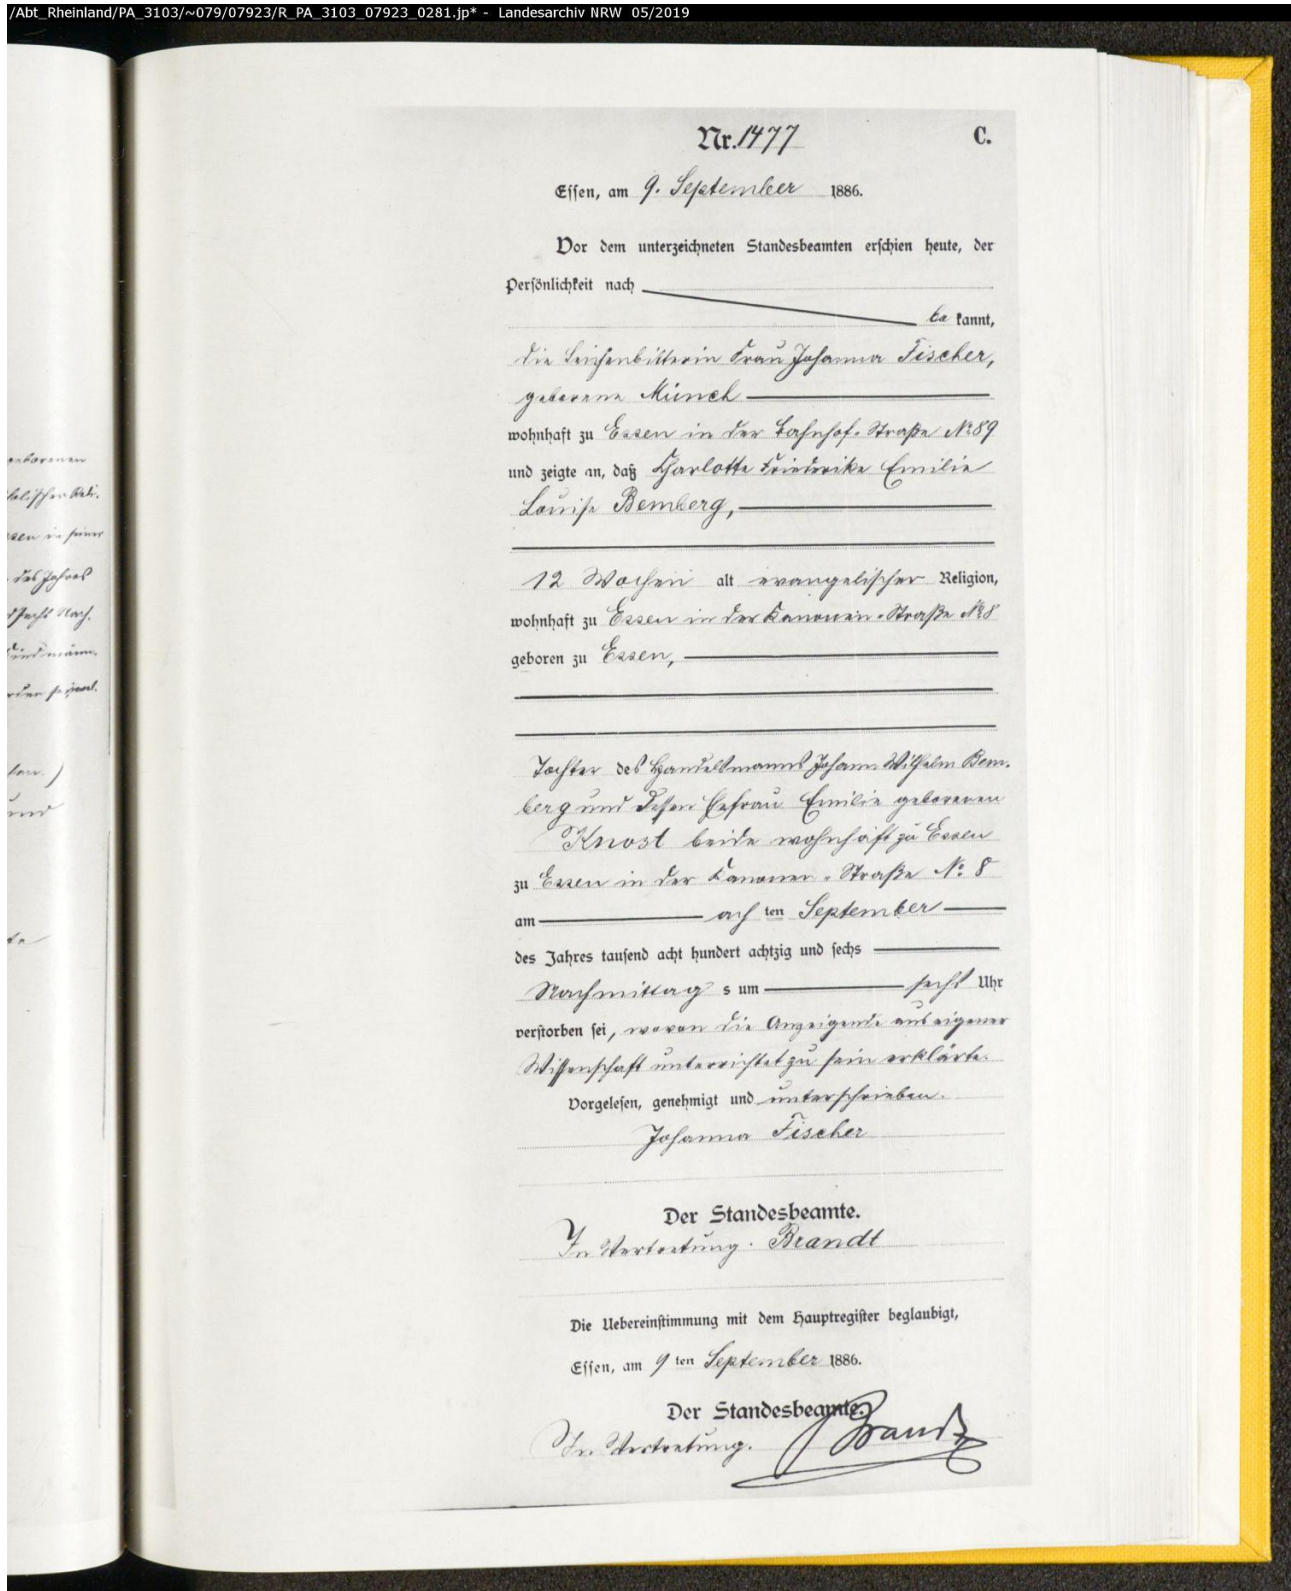 /Abt_Rheinland/PA_3103/~079/07923/R_PA_3103_07923_0281.jp* - Landesarchiv NRW 05/2019
Nr. 1477
C.
Essen, am 9. September 1886.
Vor dem unterzeichneten Standesbeamten erschien heute, der
Persönlichkeit nach
be kannt,
die Leichenbitterin Frau Johanna Fischer,
geborene Münch
wohnhaft zu Essen in der Bahnhof-Straße № 89
und zeigte an, daß Charlotte Friederike Emilie
Louise Bemberg,
12 Wochen alt evangelischer Religion,
wohnhaft zu Essen in der Kanonen-Straße № 8
geboren zu Essen,
Tochter des Handelsmanns Johann Wilhelm Bem-
berg und dessen Ehefrau Emilie geborenen
Knost beide wohnhaft zu Essen
zu Essen in der Kanonen-Straße № 8
am ach ten September
des Jahres tausend acht hundert achtzig und sechs
Nachmittag s um sechs Uhr
verstorben sei, wovon die Anzeigende aus eigener
Wissenschaft unterrichtet zu sein erklärte.
Vorgelesen, genehmigt und unterschrieben.
Johanna Fischer
Der Standesbeamte.
In Vertretung. Brandt
Die Uebereinstimmung mit dem Hauptregister beglaubigt,
Essen, am 9 ten September 1886.
Der Standesbeamte.
In Vertretung. Brandt